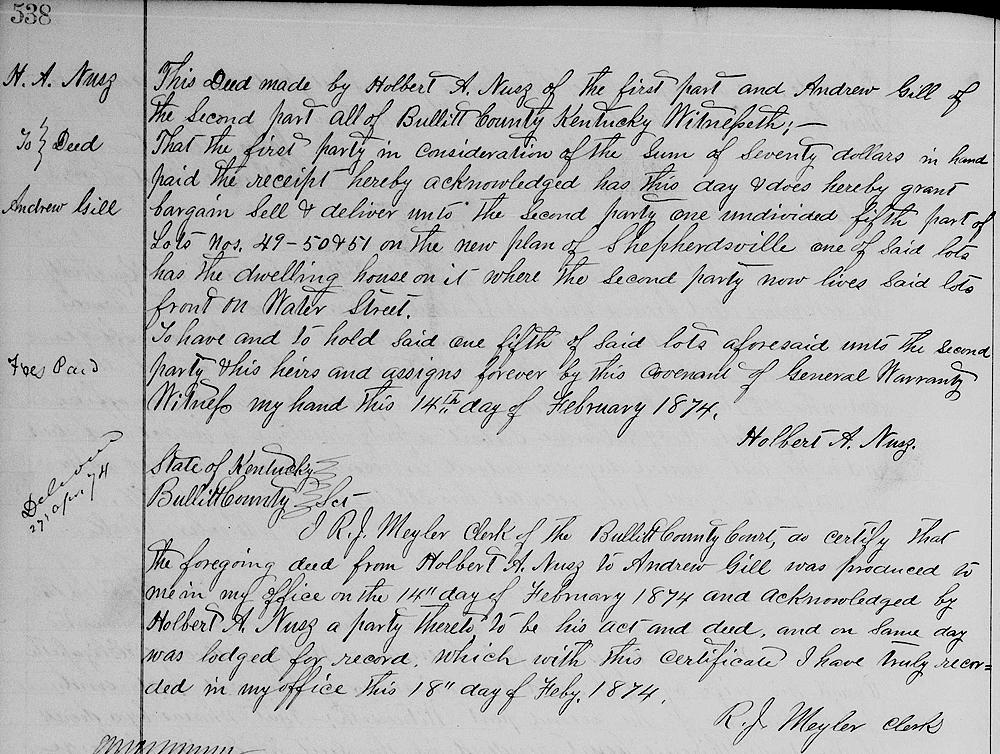 538
H. A. Nusz
To } Deed
Andrew Gill
This Deed made by Holbert A. Nusz of the first part and Andrew Gill of
the Second part all of Bullitt County Kentucky Witnesseth; —
That the first party in consideration of the Sum of Seventy dollars in hand
paid the receipt hereby acknowledged has this day & does hereby grant
bargain Sell & deliver unto the Second party one undivided fifth part of
Lots Nos. 49-50&51 on the new plan of Shepherdsville one of said lots
has the dwelling house on it where the Second party now lives Said lots
front on Water Street.
To have and to hold Said one fifth of Said lots aforesaid unto the Second
Fees Paid
party & his heirs and assigns forever by this Covenant of General Warranty
Witness my hand this 14th day of February 1874.
Holbert A. Nusz.
Delivered
27 April 74
State of Kentucky
Bullitt County } Sct
I R. J. Meyler Clerk of the Bullitt County Court, do certify that
the foregoing deed from Holbert A. Nusz to Andrew Gill was produced to
me in my office on the 14" day of February 1874 and acknowledged by
Holbert A. Nusz a party thereto to be his act and deed, and on Same day
was lodged for record, which with this certificate I have truly recor-
ded in my office this 18" day of Feby. 1874.
R. J. Meyler Clerk